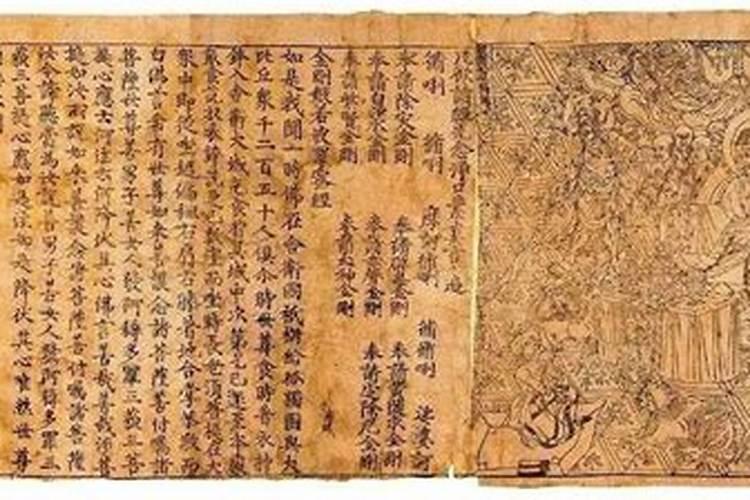 凡欲讀經先念淨口業真言一遍
脩唎 脩唎 摩訶脩唎 脩脩唎 娑婆訶
奉請除灾金剛 奉請辟毒金剛 奉請黃隨求金剛
奉請白淨水金剛 奉請赤聲金剛 奉請定除厄金剛
奉請紫賢金剛 奉請大神金剛
金剛般若波羅蜜經
如是我聞一時佛在舍衛國祇樹給孤獨園與大
比丘衆千二百五十人俱尒時世尊食時著衣持
鉢入舍衛大城乞食於其城中次第乞已還至本處
飯食訖收衣鉢洗足已敷座而坐時長老須菩提在大
衆中即從座起偏袒右肩右膝著地合掌恭敬而
白佛言希有世尊如來善護念諸菩薩善付囑諸
菩薩世尊善男子善女人發阿耨多羅三藐三菩
提心應云何住云何降伏其心佛言善哉善哉須菩
提如汝所說如來善護念諸菩薩善付囑諸菩薩
汝今諦聽當為汝說善男子善女人發阿耨多羅三
藐三菩提心應如是住如是降伏其心唯然世尊